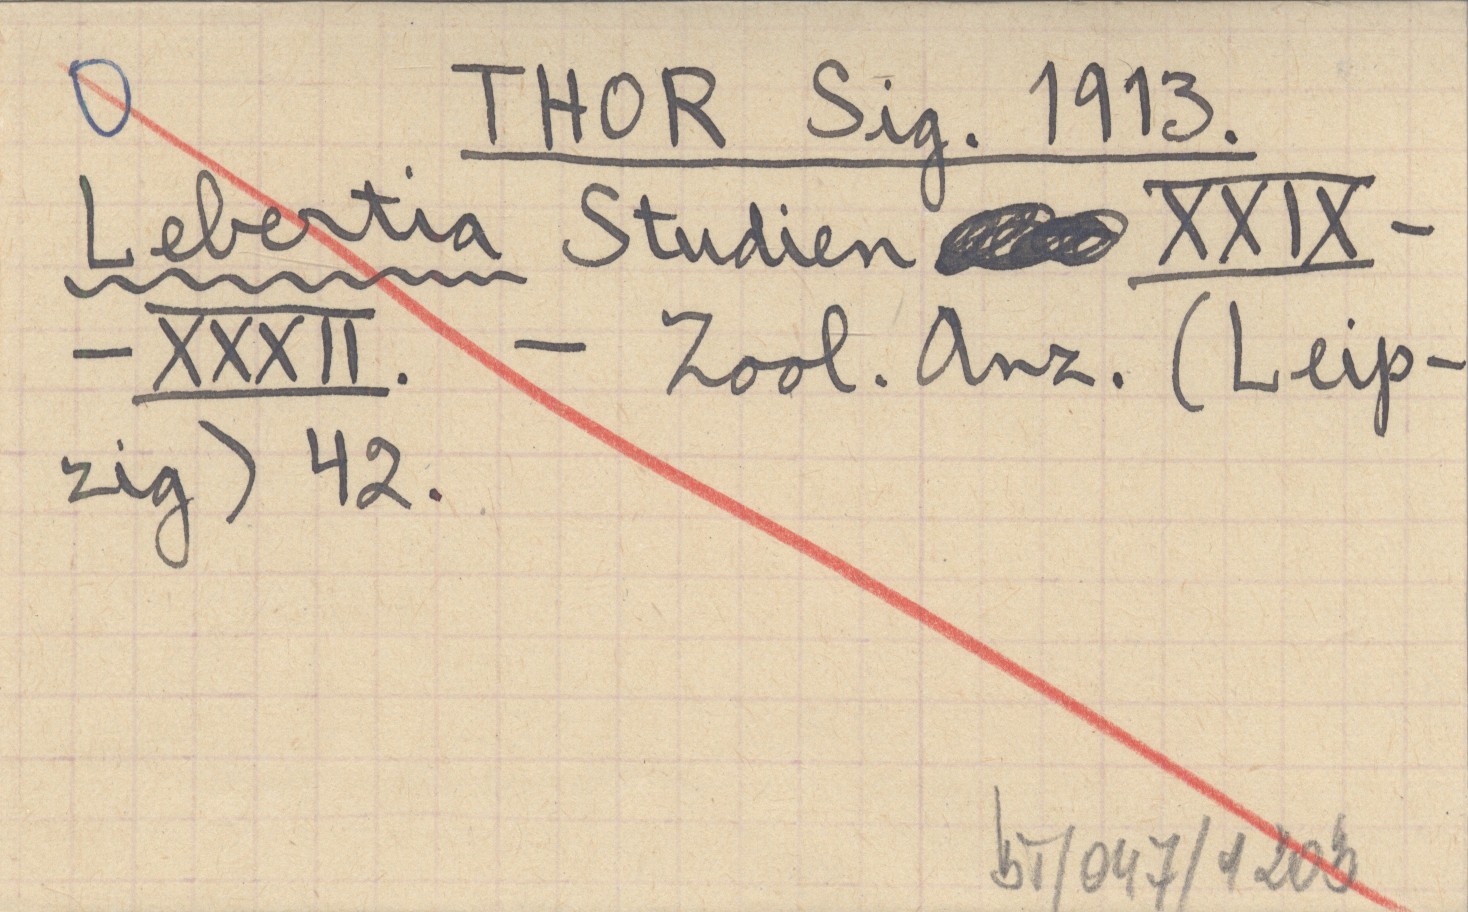 THOR Sig. 1913.
Lebertia Studien XXIX -
- XXXII. - Zool. Anz. (Leip-
zig) 42.
bI/047/1203